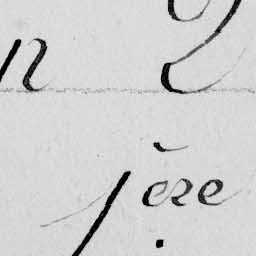 n 2
1ère